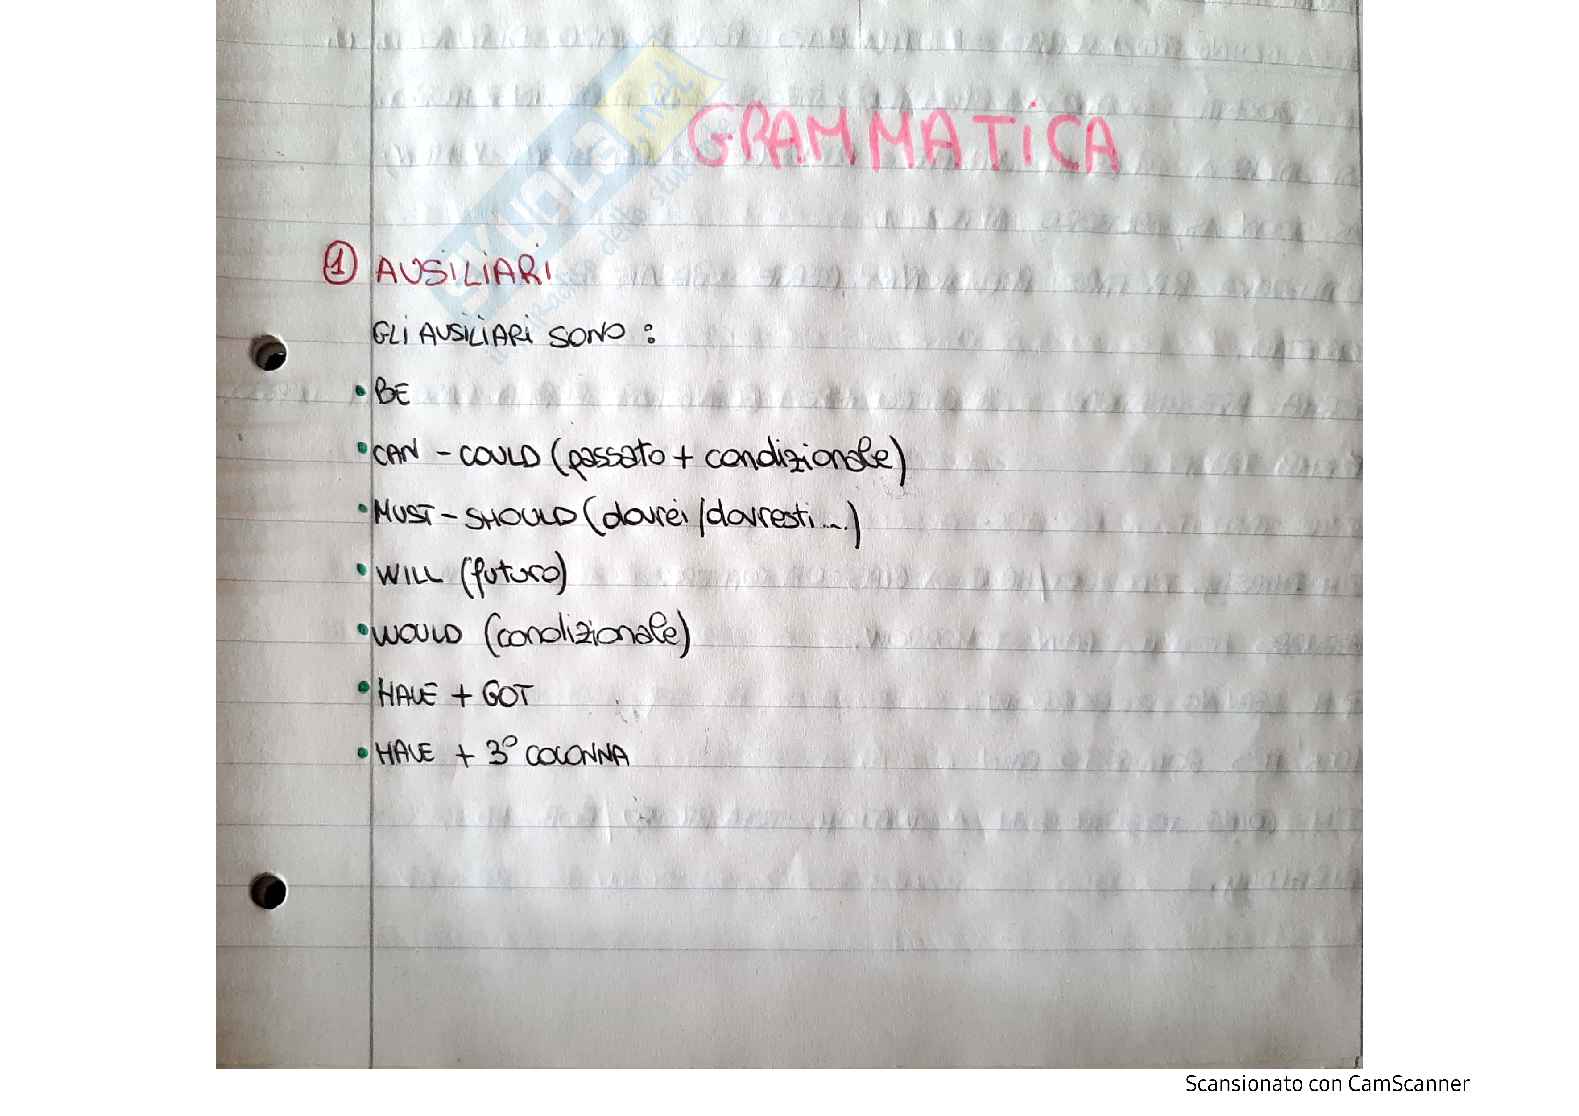 GRAMMATICA
1 AUSILIARI
GLI AUSILIARI SONO :
• BE
• CAN - COULD (passato + condizionale)
• MUST - SHOULD (dovrei/dovresti...)
• WILL (futuro)
• WOULD (condizionale)
• HAVE + GOT
• HAVE + 3° COLONNA
SKUOLA.net
Scansionato con CamScanner